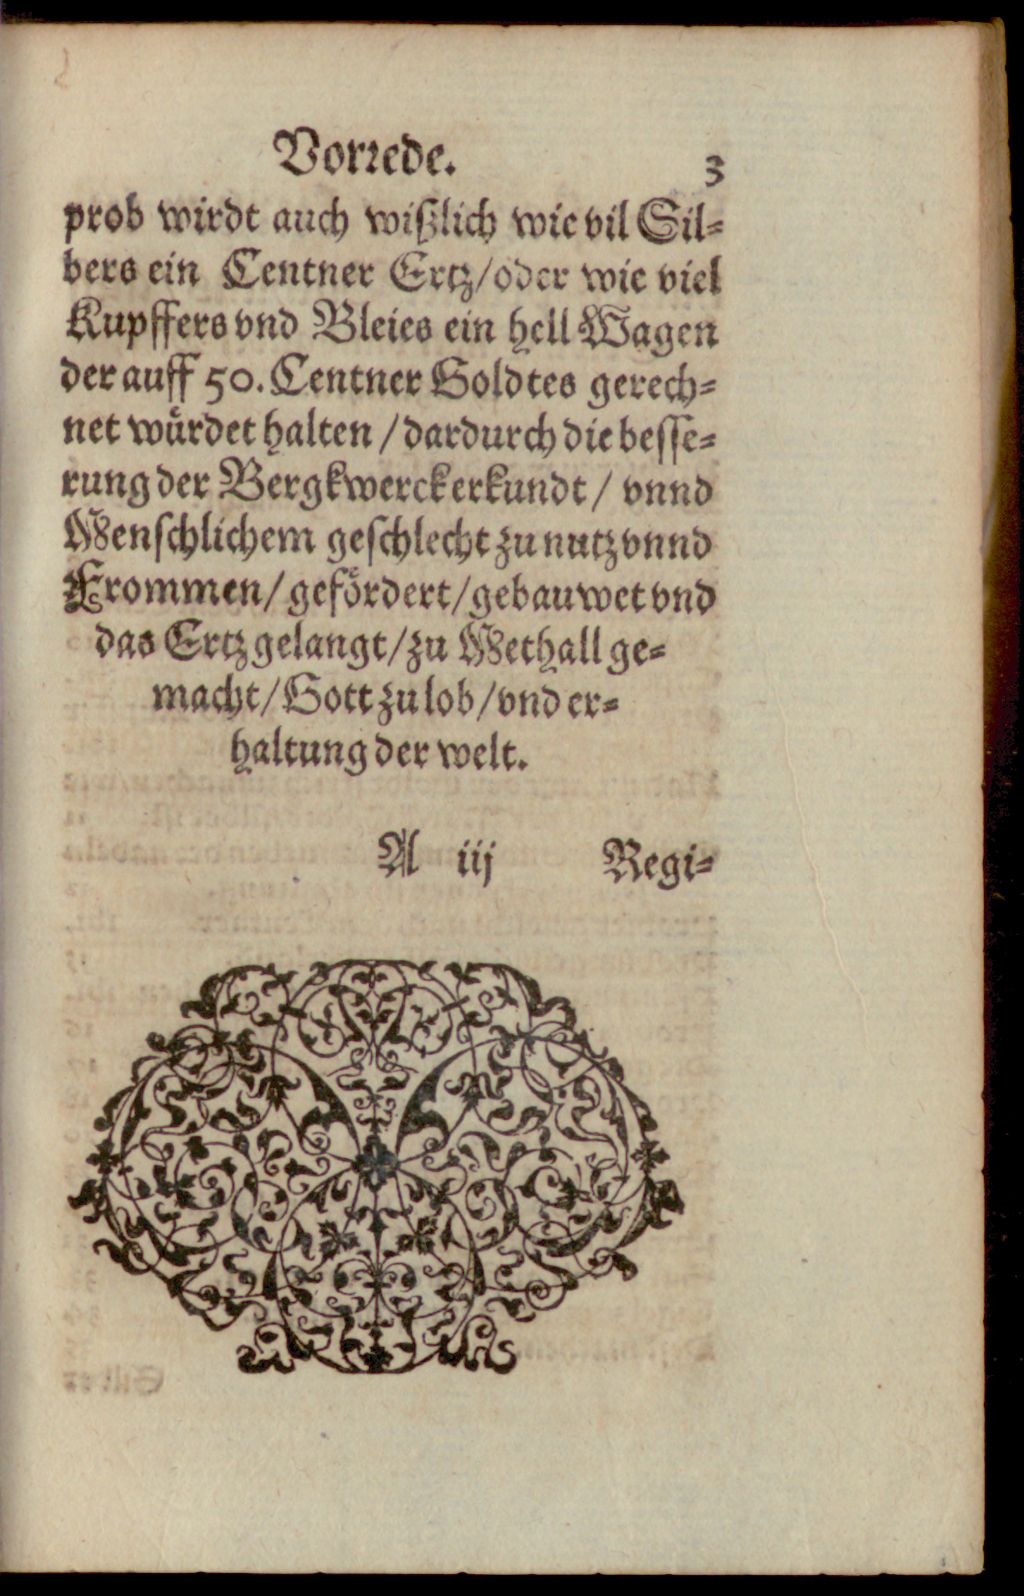 Vorrede. 3
prob wirdt auch wißlich wie vil Sil-
bers ein Centner Ertz/oder wie viel
Kupffers vnd Bleies ein hell Wagen
der auff 50. Centner Goldtes gerech-
net wuͤrdet halten / dardurch die besse-
rung der Bergkwerck erkundt / vnnd
Menschlichem geschlecht zu nutz vnnd
Frommen/ gefoͤrdert/gebauwet vnd
das Ertz gelangt/zu Methall ge-
macht/Gott zu lob/vnd er-
haltung der welt.
A iij Regi-